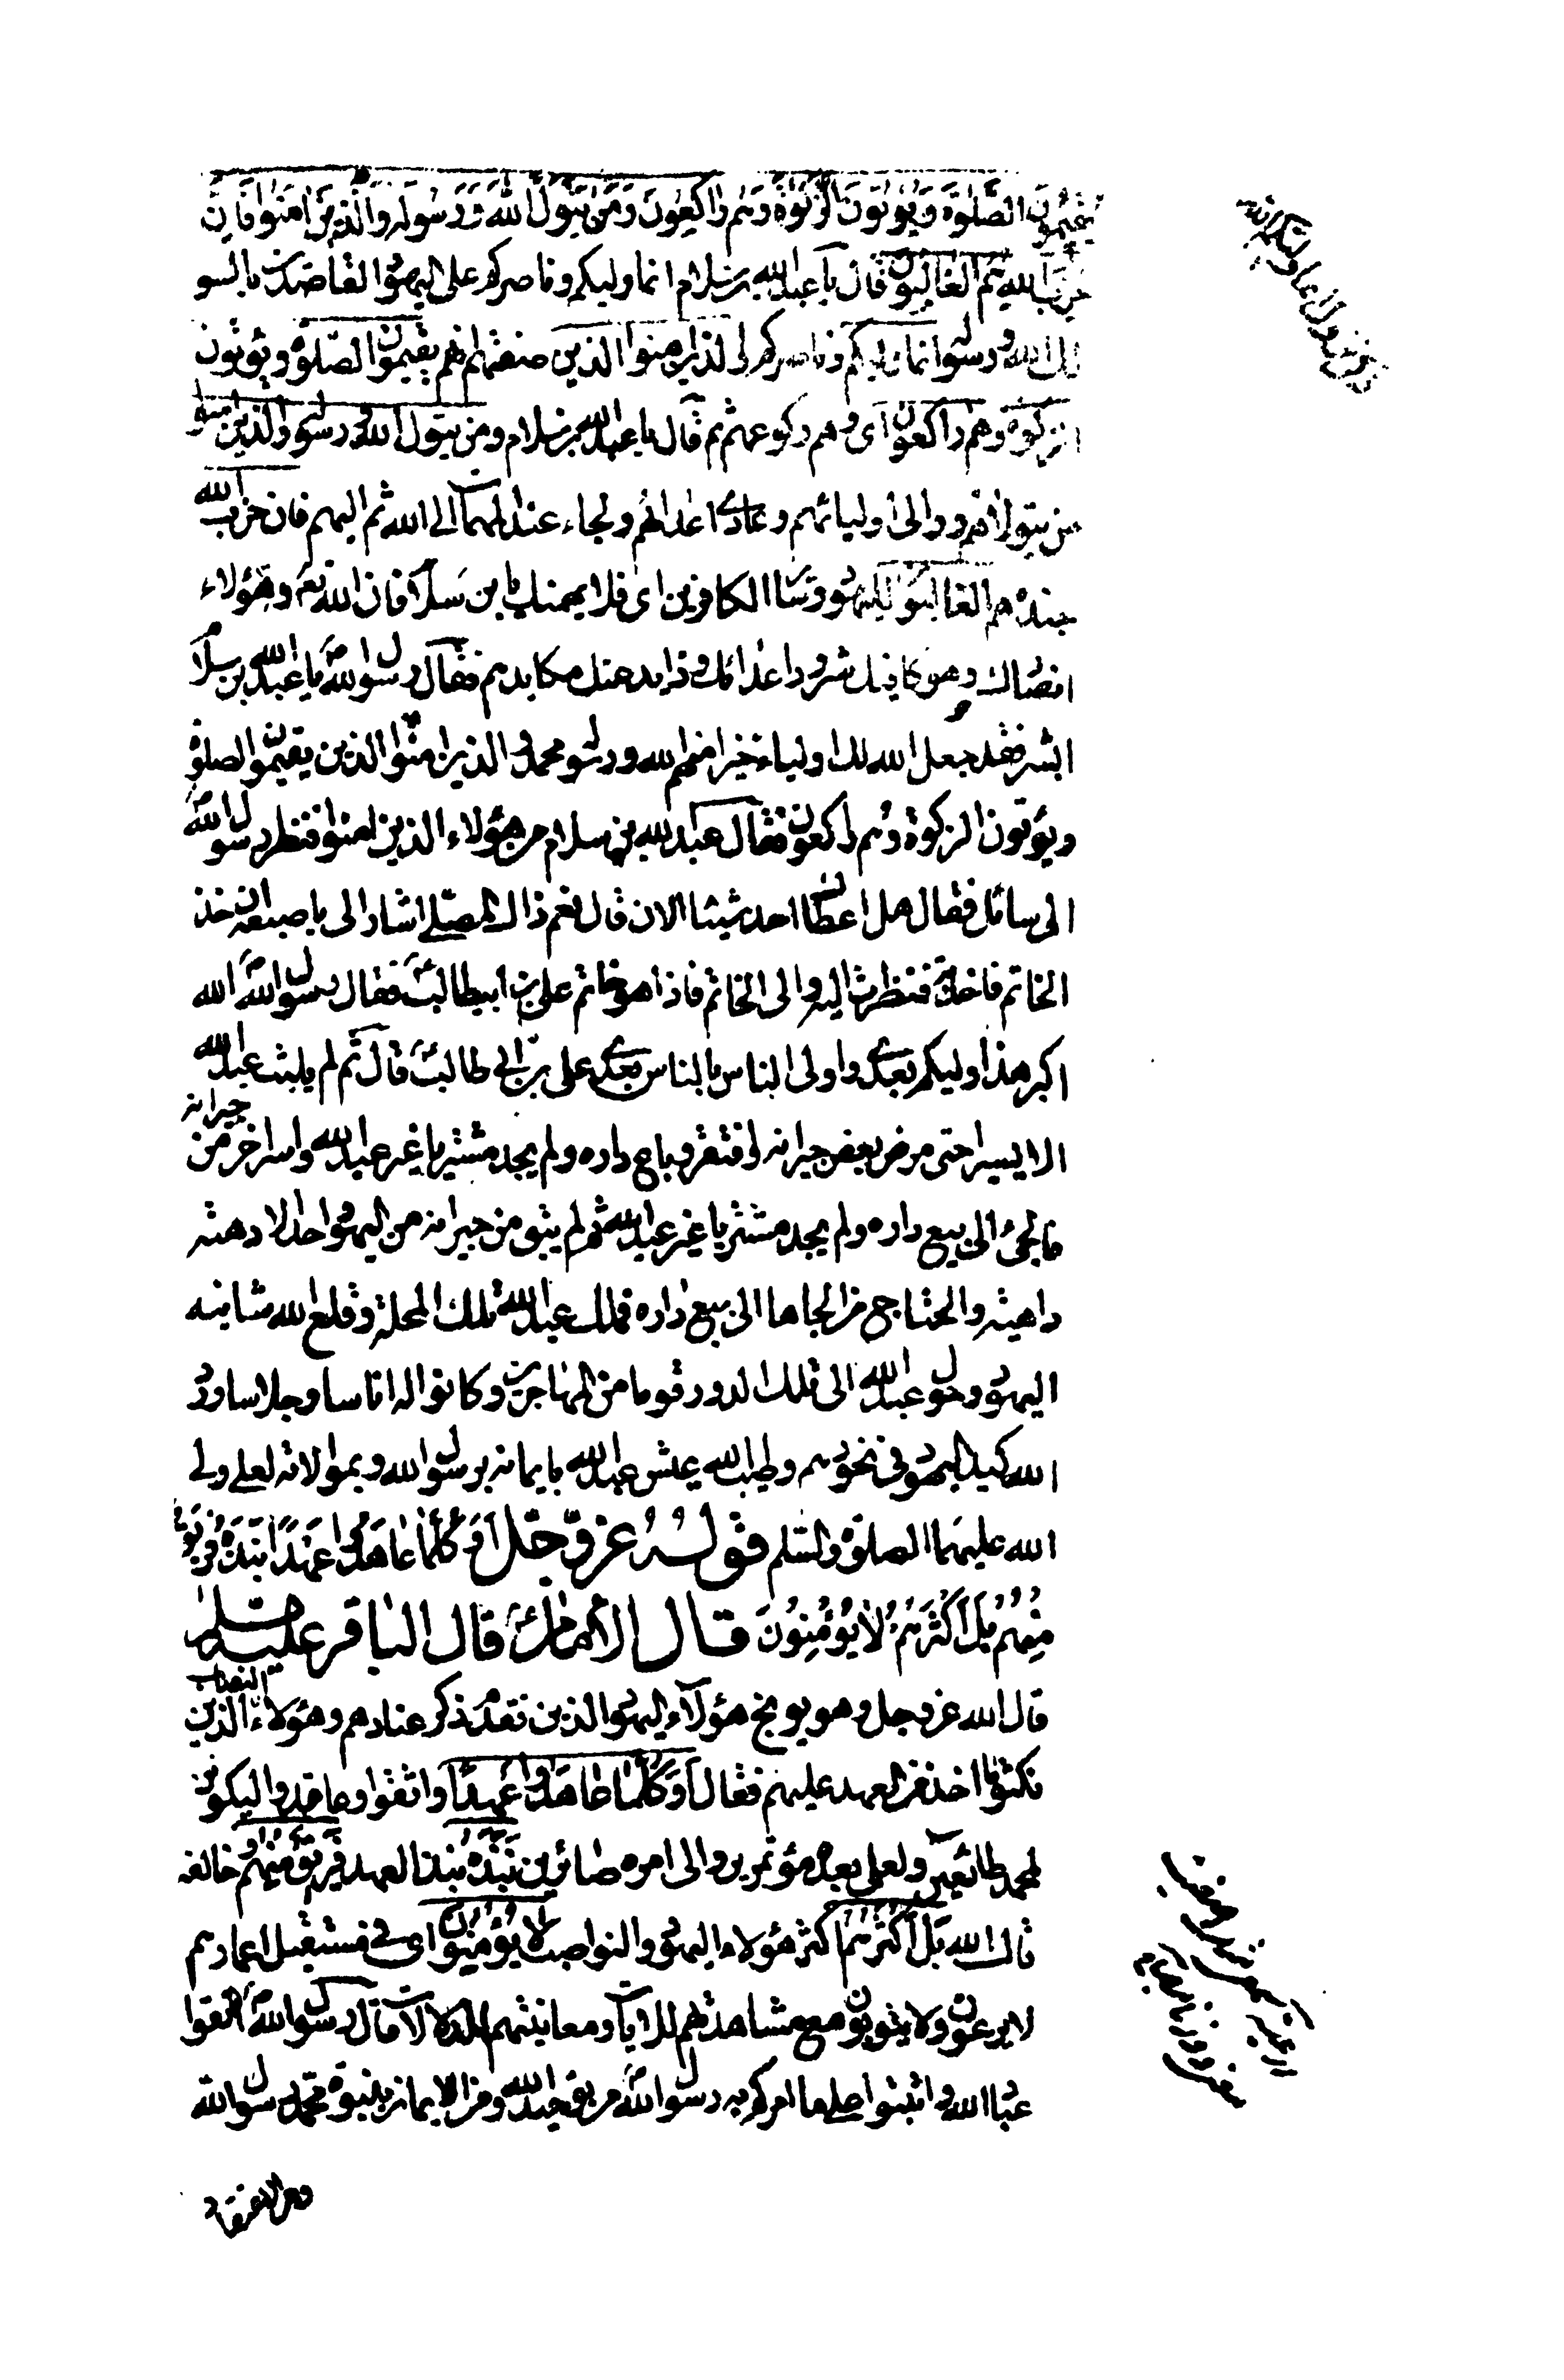 يُقِيمُونَ الصَّلٰوةَ وَيُؤْتُونَ الزَّكٰوةَ وَهُم رٰاكِعُونَ وَمَنْ يَتَوَلَّ اللّٰهَ وَرَسُولَهُ وَالَّذِينَ اٰمَنُوا فَاِنَّ
حِزْبَ اللّٰهِ هُمُ الغٰالِبُونَ قال يا عبد الله بن سلام انما وليكم وناصركم على اليهود القاصدين بالسو
لك الله ورسوله انما وليكم وناصركم الذين امنوا الذين صفتهم انهم يقيمون الصلوة ويؤتون
الزكوة وهم راكعون اى وهم فى ركوعهم ثم قال يا عبد الله بن سلام ومن يتول الله ورسوله والذين امنوا
من يتولاهم ووالى اوليائهم وعادى اعدائهم ولجاء عند المهمات الى الله ثم اليهم فان حزب الله
جنده هم الغالبون لليهود وسائر الكافرين اى فلا يهمنك يا بن سلام فان الله تعم وهؤلاء
انصارك وهو كافيك شرور اعدائك وذايد عنك مكايدهم فقال رسول الله ص يا عبد الله بن سلام
ابشر فقد جعل الله لك اولياء خيرا منهم الله ورسوله محمد والذين امنوا الذين يقيمون الصلوة
ويؤتون الزكوة وهم راكعون فقال عبد الله بن سلام من هؤلاء الذين امنوا فنظر رسول الله
الى سائل فقال هل اعطاك احد شيئا الان قال نعم ذاك المصلى اشار الى باصبعه ان خذ
الخاتم فاخذته فنظرت اليه والى الخاتم فاذا هو خاتم على بن ابيطالب ع فقال رسول الله ص الله
اكبر هذا وليكم بعدى واولى الناس بالناس بعدى على بن ابى طالب ع قال ثم لم يلبث عبد الله
الا يسيرا حتى مرض بعض جيرانه وافتقر وباع داره ولم يجد مشتريا غير عبد الله واسر اخر من جيرانه
فالجئ الى بيع داره ولم يجد مشتريا غير عبد الله ثم لم يبق من جيرانه من اليهود احد الا دهته
داهية والحتاجج من الجاها الى بيع داره فملك عبد الله تلك المحلة وقلع الله شافيه
اليهود وحول عبد الله الى تلك الدور قوما من المهاجرين وكانوا له اناسا وجلاسا ورد
الله كيد اليهود فى نحورهم وطيب الله عيش عبد الله بايمانه برسول الله وبموالاته لعلى ولى
الله عليهما الصلوة والسلم قوله عز و جل اَوَ كُلَّمٰا عٰاهَدُوا عَهْدًا نَبَذَهُ فَرِيقٌ
مِنْهُمْ بَلْ اَكْثَرُهُمْ لاٰ يُؤْمِنُونَ قال الامام ع قال الباقر عليه السلم
قال الله عز وجل وهو يوبخ هؤلاء اليهود الذين تقدم ذكر عنادهم وهؤلاء النصاب الذين
نكثوا ما اخذ من العهد عليهم فقال اَوَ كُلَّمٰا عٰاهَدُوا عَهْدًا واثقوا وعاقدوا ليكونن
لمحمد طائعين ولعلى بعده مؤتمرين والى امره صائرين نَبَذَهُ نبذ العهد فَرِيقٌ مِنْهُمْ وخالفه
قال الله بَلْ اَكْثَرُهُمْ اكثر هؤلاء اليهود والنواصب لاٰ يُؤْمِنُونَ اى فى مستقبل اعمارهم
لا يرعون ولا يتوبون مع مشاهدتهم للايات ومعاينتهم للدلالات قال رسول الله ص اتقوا
عباد الله واثبتوا على ما امركم به رسول الله ص من توحيد الله ومن الايمان بنبوة محمد رسول الله
ومن الاعتقاد